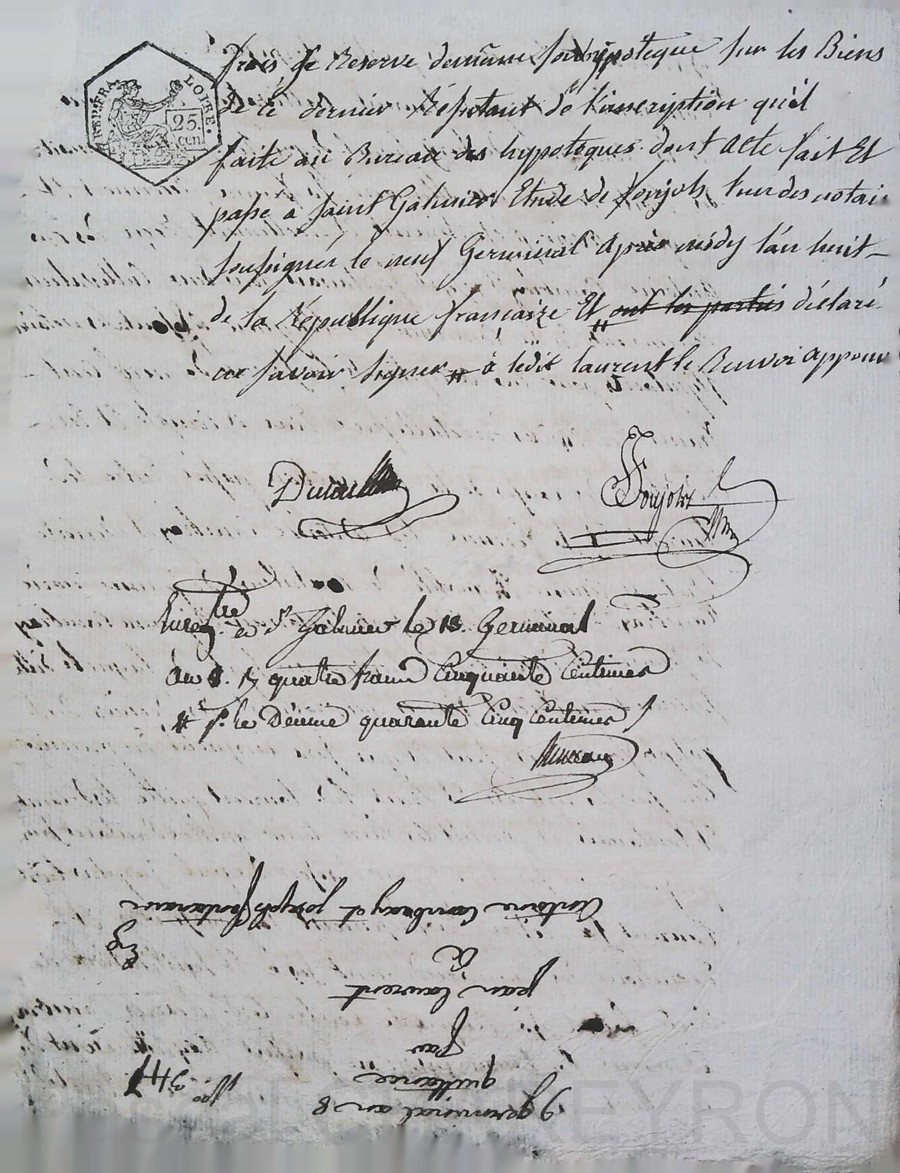 REP. FRA. LOIRE.
25
CEN.
frais Se Reserve demême son hypoteque sur les Biens
De ce dernier Résultant de l'inscription qu'il
faite au Bureau des hypoteques dont Acte fait Et
passé à Saint Galmier Etude de Ponjols l'un des notai
soussignés le neuf Germinal Après midy l'an huit
de la République françaize Et # ont les parties déclaré
ne savoir signer # à ledit laurent le Renvoi Approuv
Enregtré à St Galmier le 13 Germinal
an 8. R quatre francs Cinquante Centimes
# pr. le Décime quarante Cinq Centimes
9 germinal an 8
quittance
No 347
par
jean laurent
à
antoine et joseph